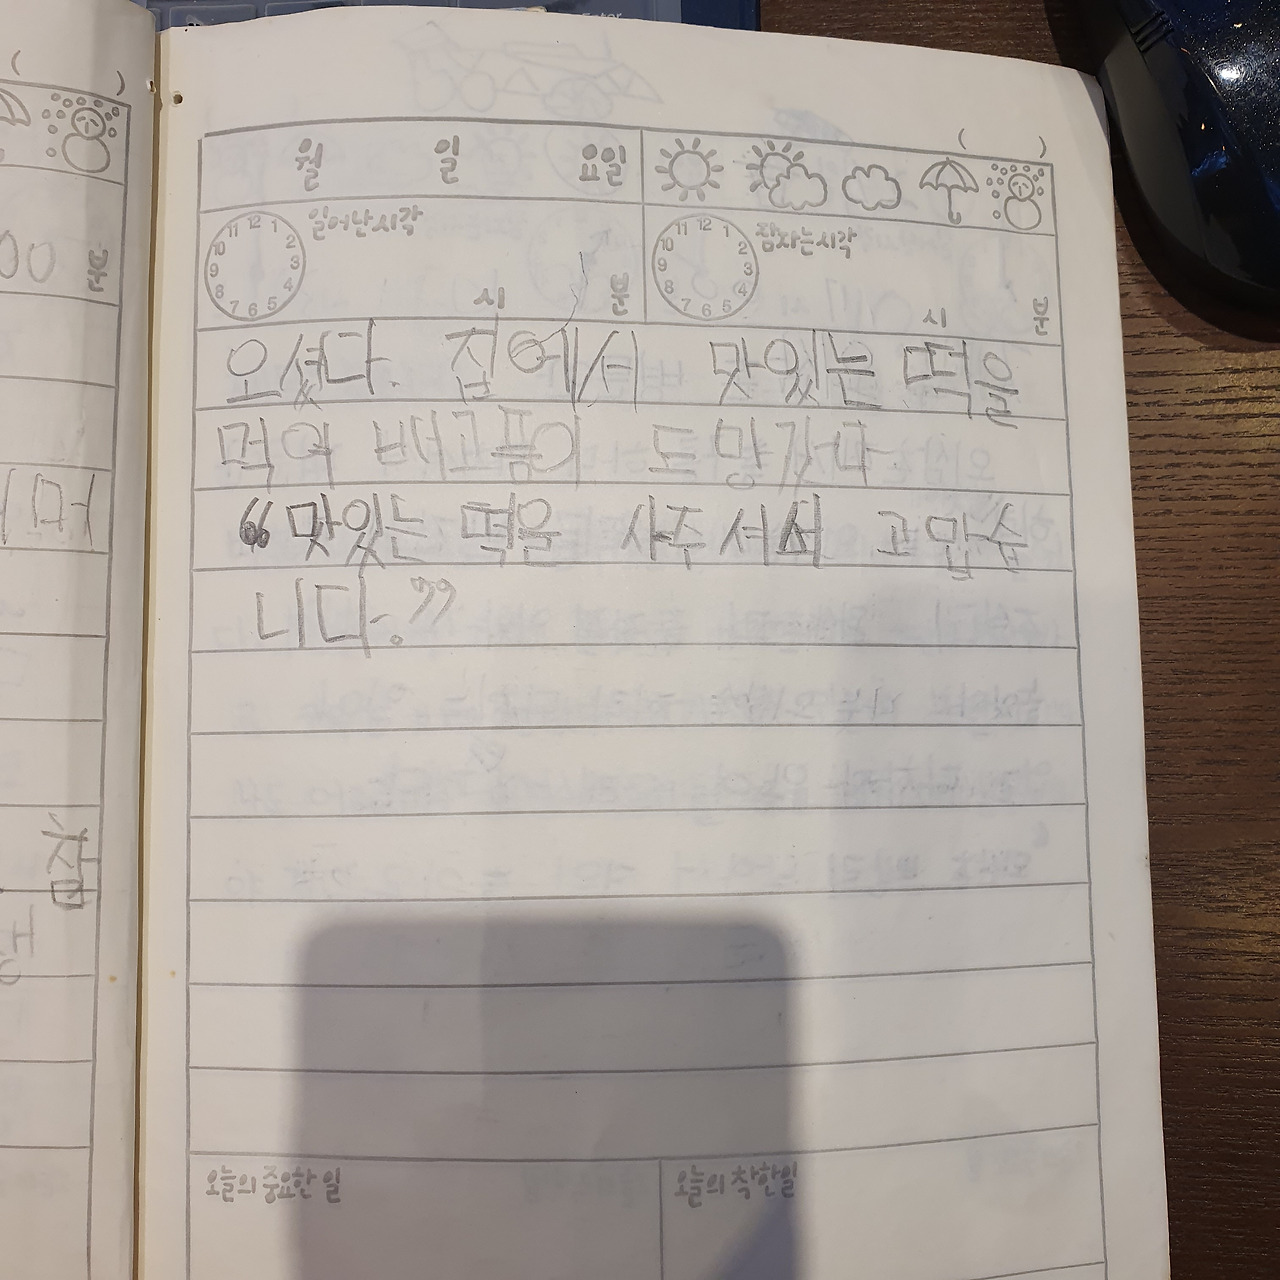 Enter
( )
( )
월 일 요일
12 1 2 3 4 5 6 7 8 9 10 11
일어난시각
시 분
12 1 2 3 4 5 6 7 8 9 10 11
잠자는시각
시 분
00 분
오셨다. 집에서 맛있는 떡을
먹어 배고픔이 도망갔다
“맛있는 떡을 사주셔서 고맙습
니다.”
오늘의 중요한 일
오늘의 착한일